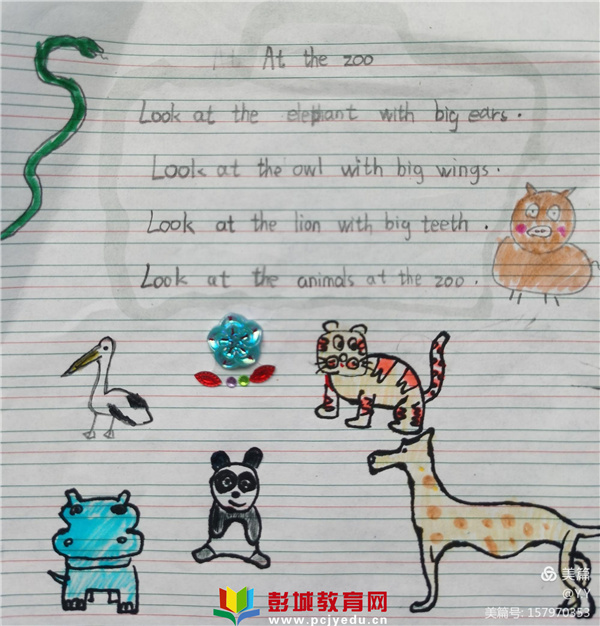 At the zoo
Look at the elephant with big ears.
Look at the owl with big wings.
Look at the lion with big teeth.
Look at the animals at the zoo.
彭城教育网
www.pcjyedu.cn
美篇
@YY
美篇号: 157970353